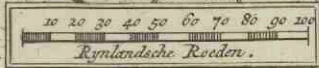 10 20 30 40 50 60 70 80 90 100
Rynlandsche Roeden.